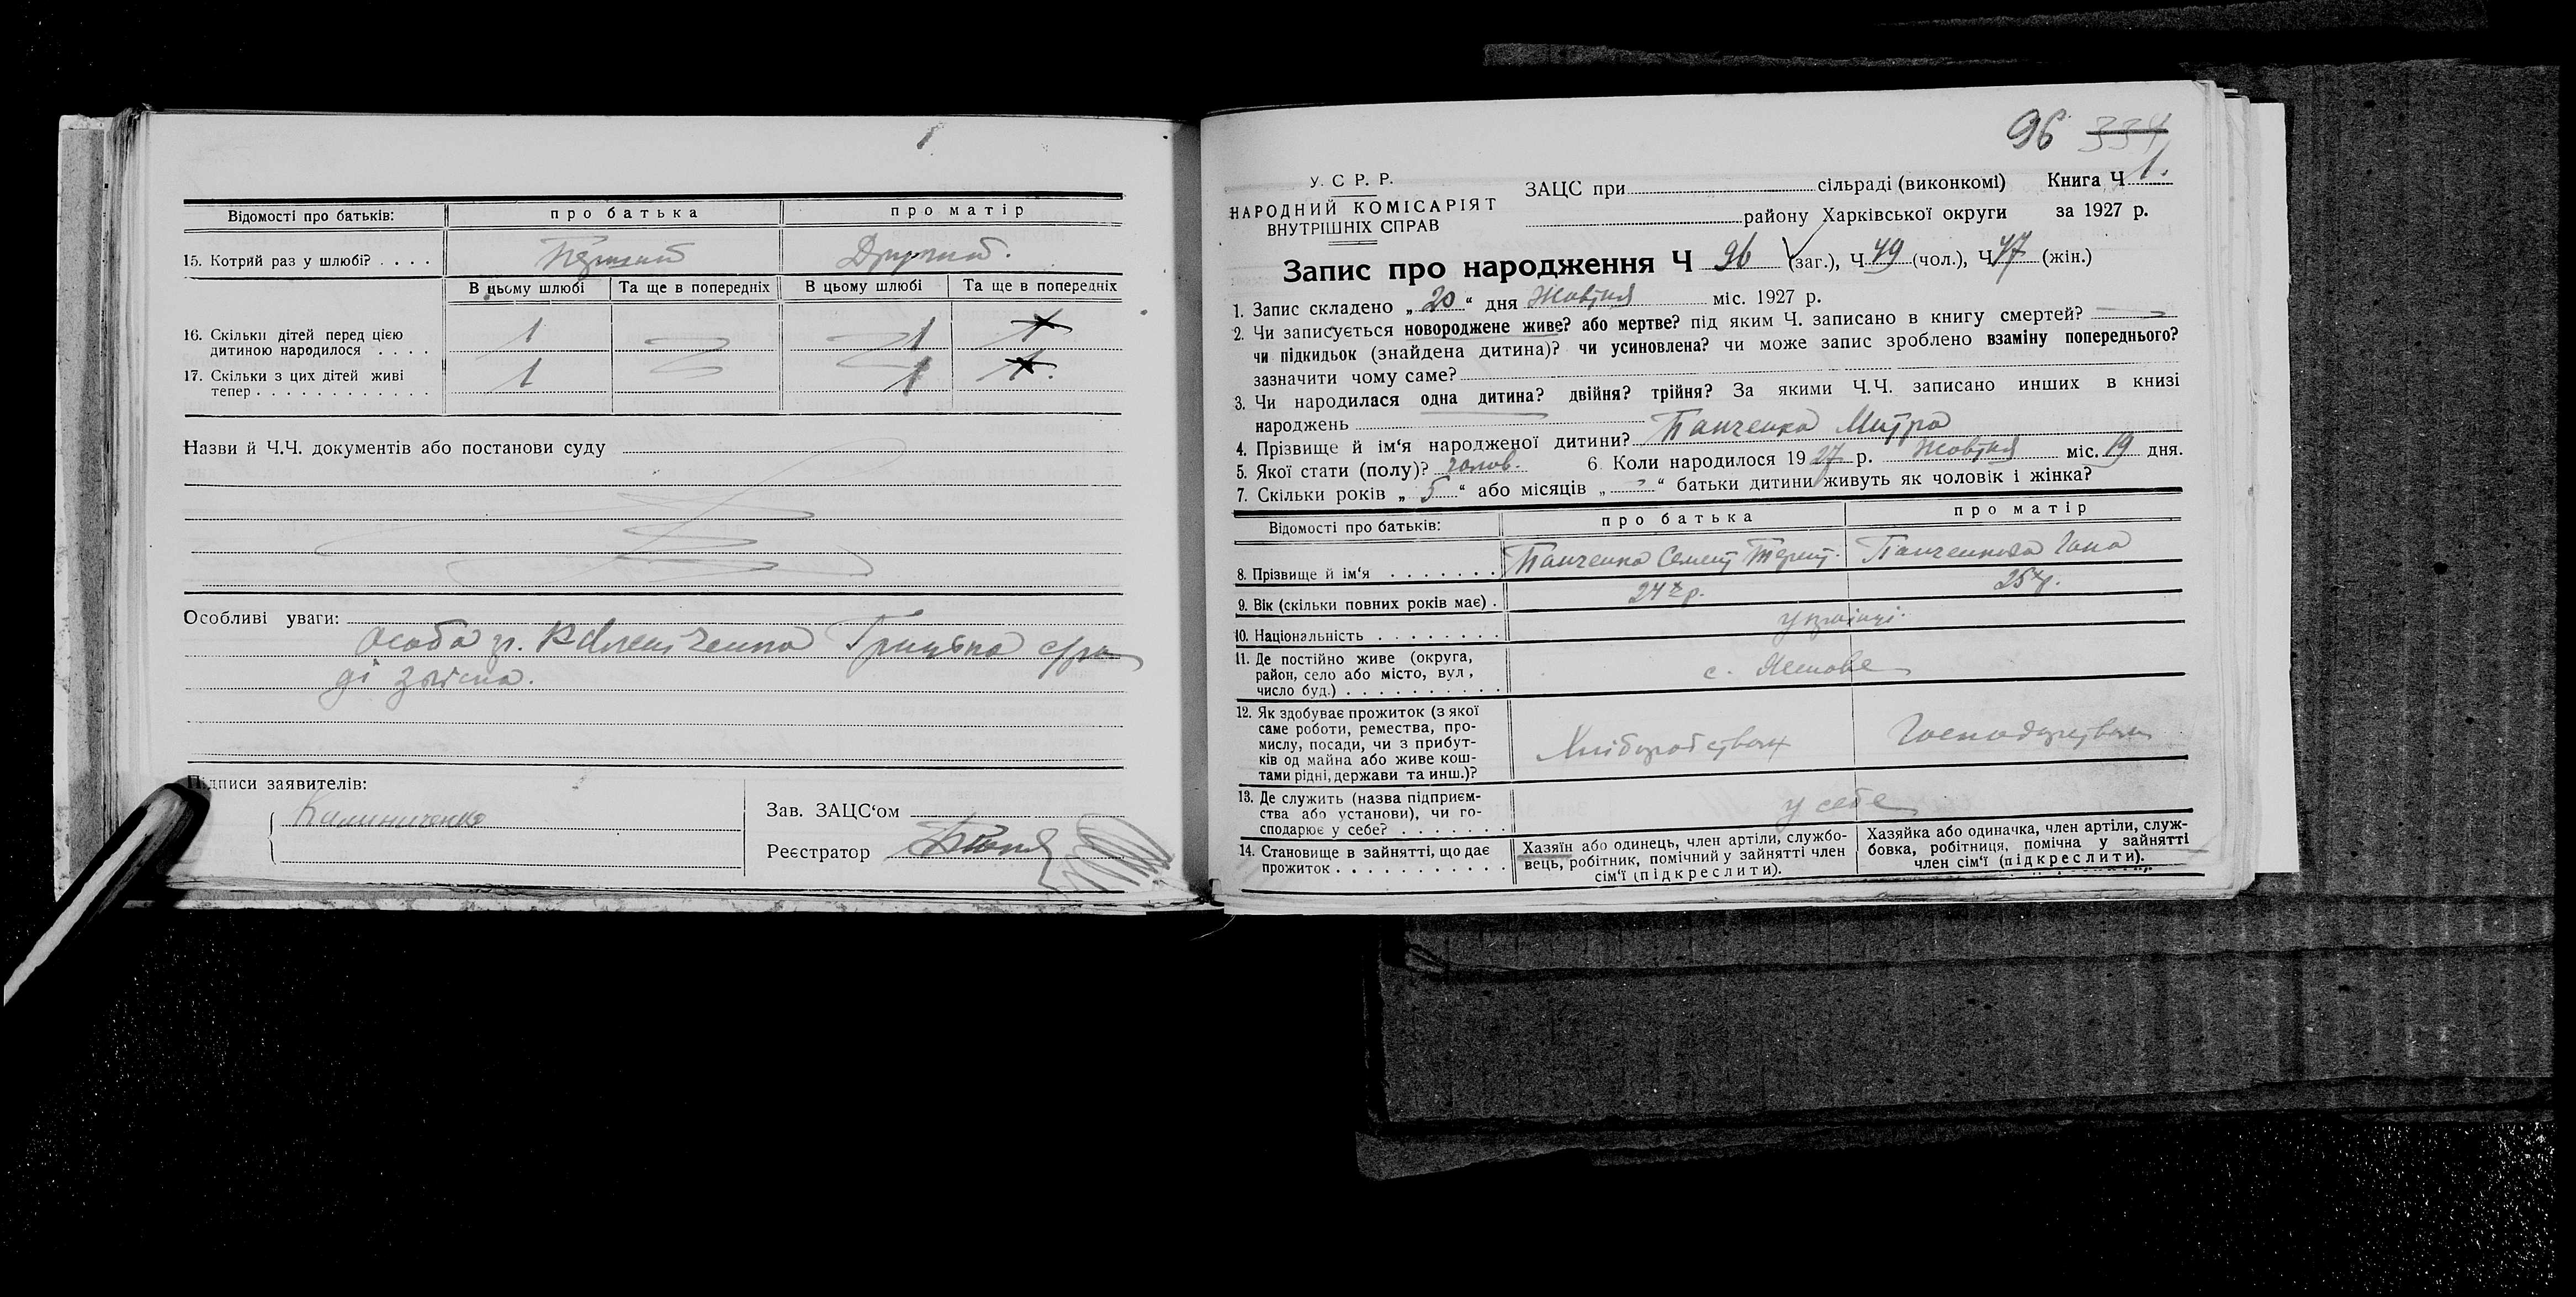 1
Відомості про батьків: про батька про матір
15. Котрий раз у шлюбі? . . . . Перший Другий.
В цьому шлюбі Та ще в попередніх В цьому шлюбі Та ще в попередніх
16. Скільки дітей перед цією
дитиною народилося . . . . 1 1 1
17. Скільки з цих дітей живі
тепер . . . . . . . . . . . . 1 1 1.
Назви й Ч.Ч. документів або постанови суду
Особливі уваги:
особа гр. Грицька
Підписи заявителів:
Калиниченко
Зав. ЗАЦС‘ом
Реєстратор
96 334
У. С Р. Р.
НАРОДНИЙ КОМІСАРІЯТ
ВНУТРІШНІХ СПРАВ
ЗАЦС при сільраді (виконкомі) Книга Ч 1.
району Харківської округи за 1927 р.
Запис про народження Ч 96 (заг.), Ч 49 (чол.), Ч 47 (жін.)
1. Запис складено „ 20 “ дня Жовтня міс. 1927 р.
2. Чи записується новороджене живе? або мертве? під яким Ч. записано в книгу смертей?
чи підкидьок (знайдена дитина)? чи усиновлена? чи може запис зроблено взаміну попереднього?
зазначити чому саме?
3. Чи народилася одна дитина? двійня? трійня? За якими Ч.Ч. записано инших в книзі
народжень
4. Прізвище й ім‘я народженої дитини? Панченко Митро
5. Якої стати (полу)? чолов. 6. Коли народилося 19 27 р. Жовтня міс. 19 дня.
7. Скільки років „ 5 “ або місяців „ - “ батьки дитини живуть як чоловік і жінка?
Відомості про батьків: про батька про матір
8. Прізвище й ім‘я . . . . . . . Панченко Семен Панченкова Гана
9. Вік (скільки повних років має) . 24 р. 25 р.
10. Національність . . . . . . . . українці.
11. Де постійно живе (округа,
район, село або місто, вул,
число буд.) . . . . . . . . . . с.
12. Як здобуває прожиток (з якої
саме роботи, ремества, про-
мислу, посади, чи з прибут-
ків од майна або живе кош-
тами рідні, держави та инш.)? Хліборобством Господарством
13. Де служить (назва підприєм-
ства або установи), чи го-
сподарює у себе? . . . . . . . . у себе
14. Становище в зайнятті, що дає
прожиток . . . . . . . . . . . .
Хазяїн або одинець, член артіли, службо-
вець, робітник, помічний у зайнятті член
сім‘ї (підкреслити).
Хазяйка або одиначка, член артіли, служ-
бовка, робітниця, помічна у зайнятті
член сім‘ї (підкреслити).